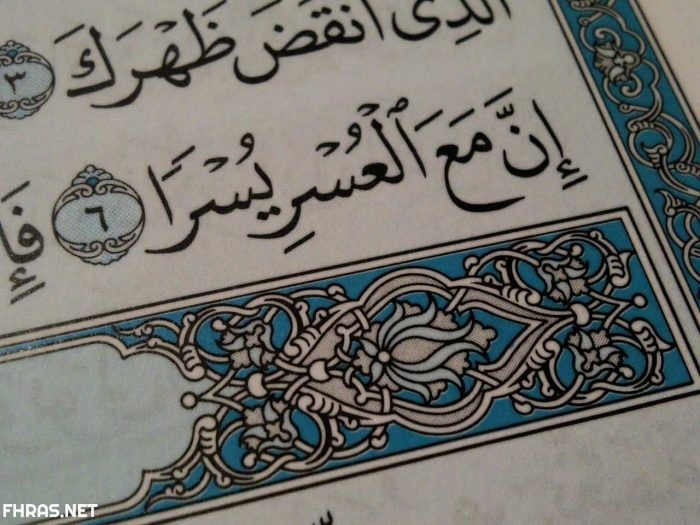 ٱلَّذِىٓ أَنقَضَ ظَهْرَكَ ٣
إِنَّ مَعَ ٱلْعُسْرِ يُسْرًا ٦ فَإِ
FHRAS.NET